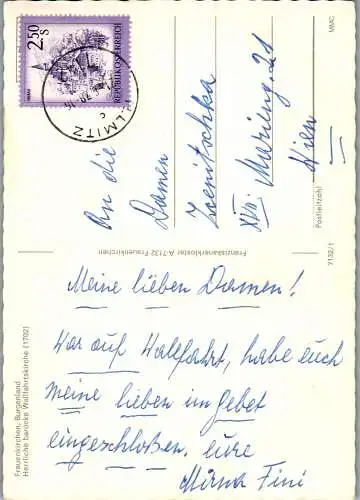 2.50
S
REPUBLIK ÖSTERREICH
ILLMITZ
An die
Damen
XVIII
Wien
Postleitzahl
MMC
Franziskanerkloster A-7132 Frauenkirchen
7132/1
Frauenkirchen, Burgenland
Herrliche barocke Wallfahrtskirche (1702)
Meine lieben Damen!
War auf Wallfahrt, habe euch
meine lieben im Gebet
eingeschloßen. eure
Mirna Fini